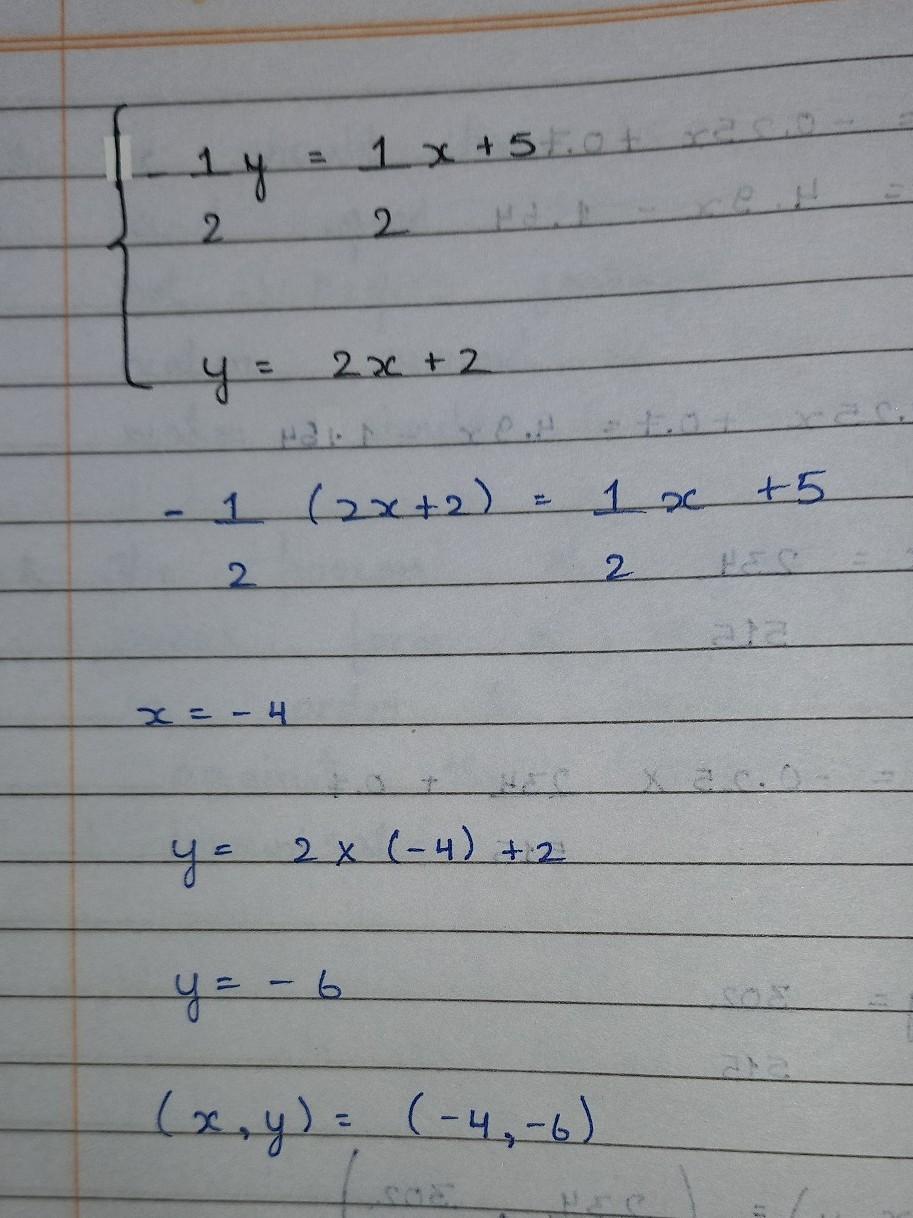 - 1/2 y = 1/2 x + 5
y = 2x + 2
- 1/2 (2x+2) = 1/2 x + 5
x = - 4
y = 2 x (-4) + 2
y = - 6
(x, y) = (-4, -6)